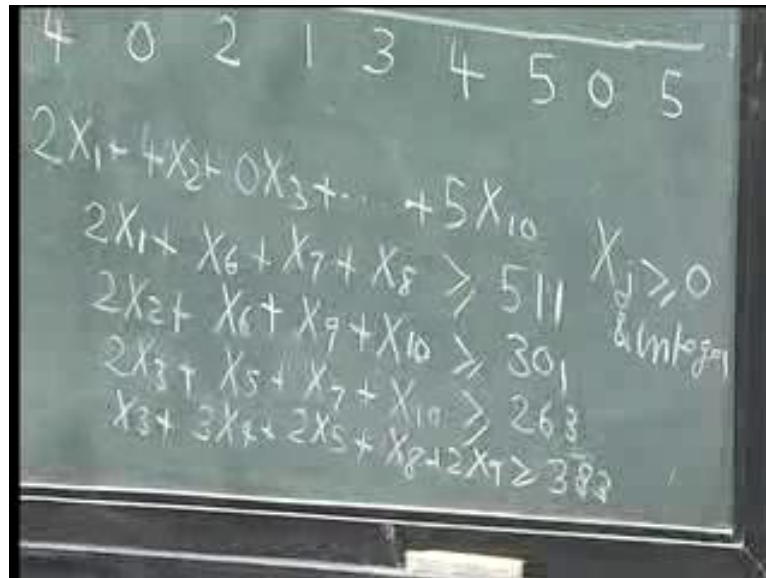 4 0 2 1 3 4 5 0 5
2X₁ + 4X₂ + 0X₃ + ... + 5X₁₀
2X₁ + X₆ + X₇ + X₈ ≥ 511
2X₂ + X₆ + X₉ + X₁₀ ≥ 301
2X₃ + X₅ + X₇ + X₁₀ ≥ 263
X₃ + 3X₄ + 2X₅ + X₈ + 2X₉ ≥ 383
Xⱼ ≥ 0
& integer